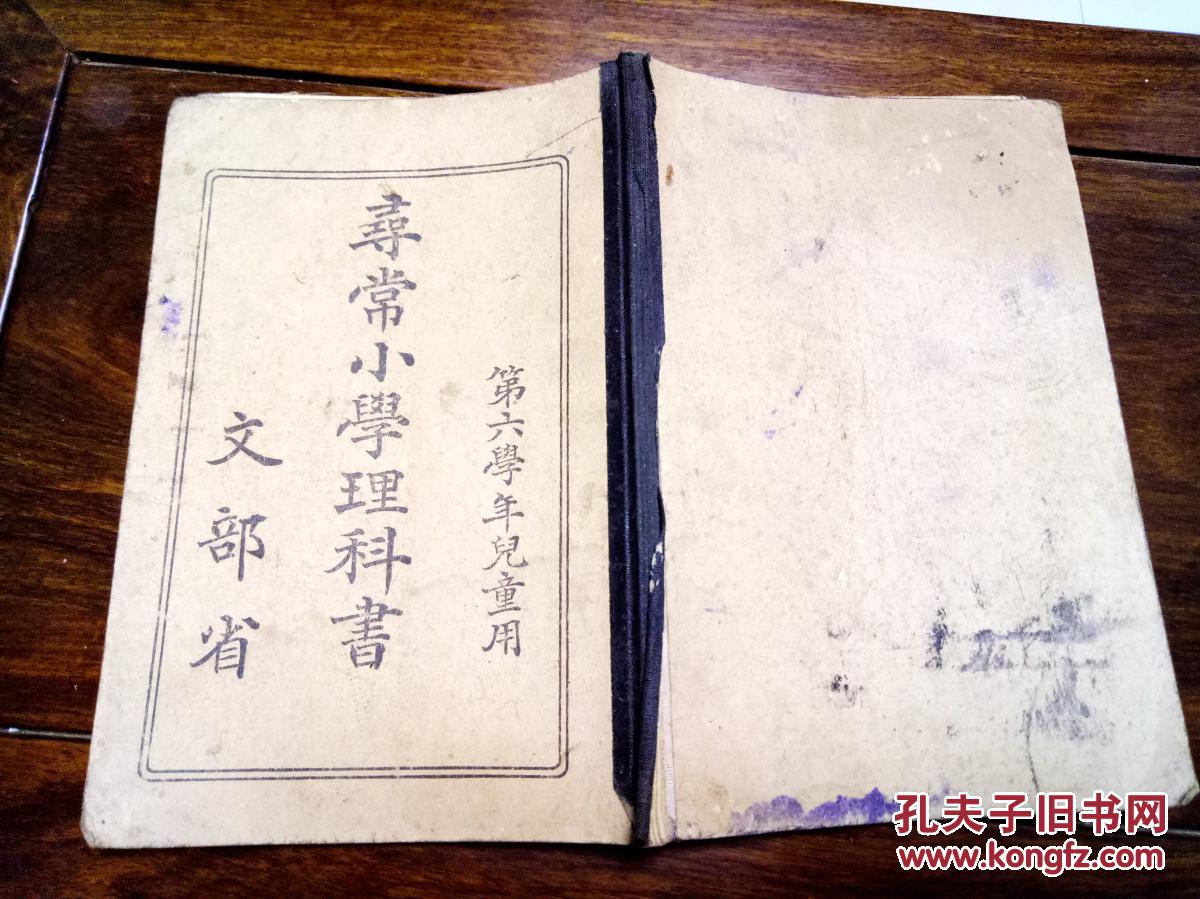 第六學年兒童用
尋常小學理科書
文部省
孔夫子旧书网
www.kongfz.com